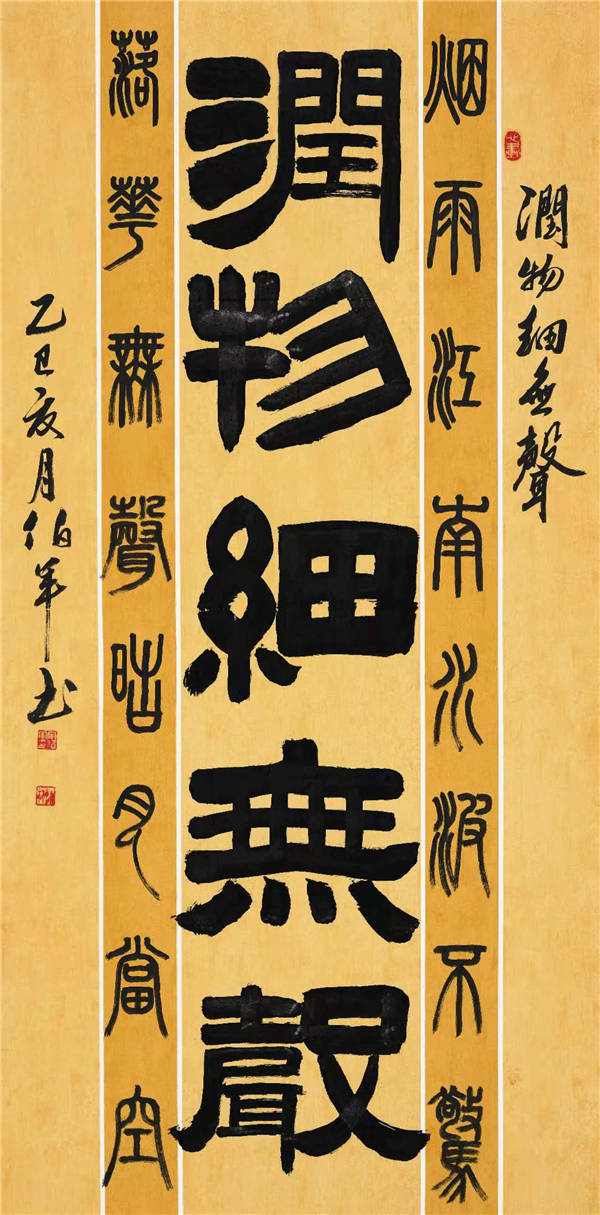 潤物細無聲
烟雨江南水波不驚
潤物細無聲
落華無聲晧月當空
乙巳夏月伯 书